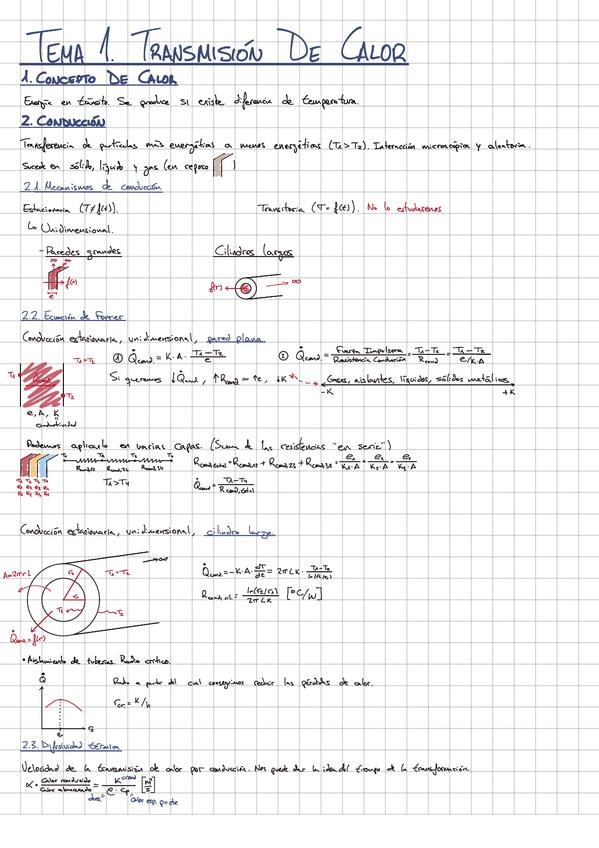 TEMA 1. TRANSMISIÓN DE CALOR
1. CONCEPTO DE CALOR
Energía en tránsito. Se produce si existe diferencia de temperatura.
2. CONDUCCIÓN
Transferencia de partículas más energéticas a menos energéticas (T₁>T₂). Interacción microscópica y aleatoria.
Sucede en sólido, líquido y gas (en reposo )
2.1. Mecanismos de conducción
Estacionaria (T≠f(t)). Transitoria (T=f(t)). No lo estudiaremos
↳ Unidimensional.
- Paredes grandes Cilindros largos
∞ ∞
f(r) ∞
e
2.2. Ecuación de Fourier
Conducción estacionaria, unidimensional, pared plana.
T₁>T₂ ① Q̇cond = K·A· (T₁-T₂)/e ② Q̇cond = Fuerza Impulsora/Resistencia Conducción = (T₁-T₂)/Rcond = (T₁-T₂)/(e/K·A)
T₁ Si queremos ↓Q̇cond, ↑Rcond = ↑e, ↓K Gases, aislantes, líquidos, sólidos metálicos
T₂ -K +K
e, A, K
conductividad
Podemos aplicarlo en varias capas. (Suma de las resistencias "en serie")
Rcond,total = Rcond,12 + Rcond,23 + Rcond,34
T₁>T₄ Q̇cond = (T₁-T₄)/Rcond,total
T₁ T₂ T₃ T₄
Conducción estacionaria, unidimensional, cilindro largo.
∞
A=2πrL T₁>T₂ Q̇cond = -K·A· dT/dr = 2πLK · (T₁-T₂)/ln(r₂/r₁)
r₂ Rcond,cil = ln(r₂/r₁)/2πLK [°C/W]
T₁ T₂
Q̇cond = f(r)
• Aislamiento de tuberías. Radio crítico.
Q̇ Radio a partir del cual conseguimos reducir las pérdidas de calor.
rcr = K/h
r₂
2.3. Difusividad térmica
Velocidad de la transmisión de calor por conducción. Nos puede dar la idea del tiempo de la transformación.
α = Calor conducido/Calor almacenado = K/(ρ·cp) [m²/s]
calor esp. p cte